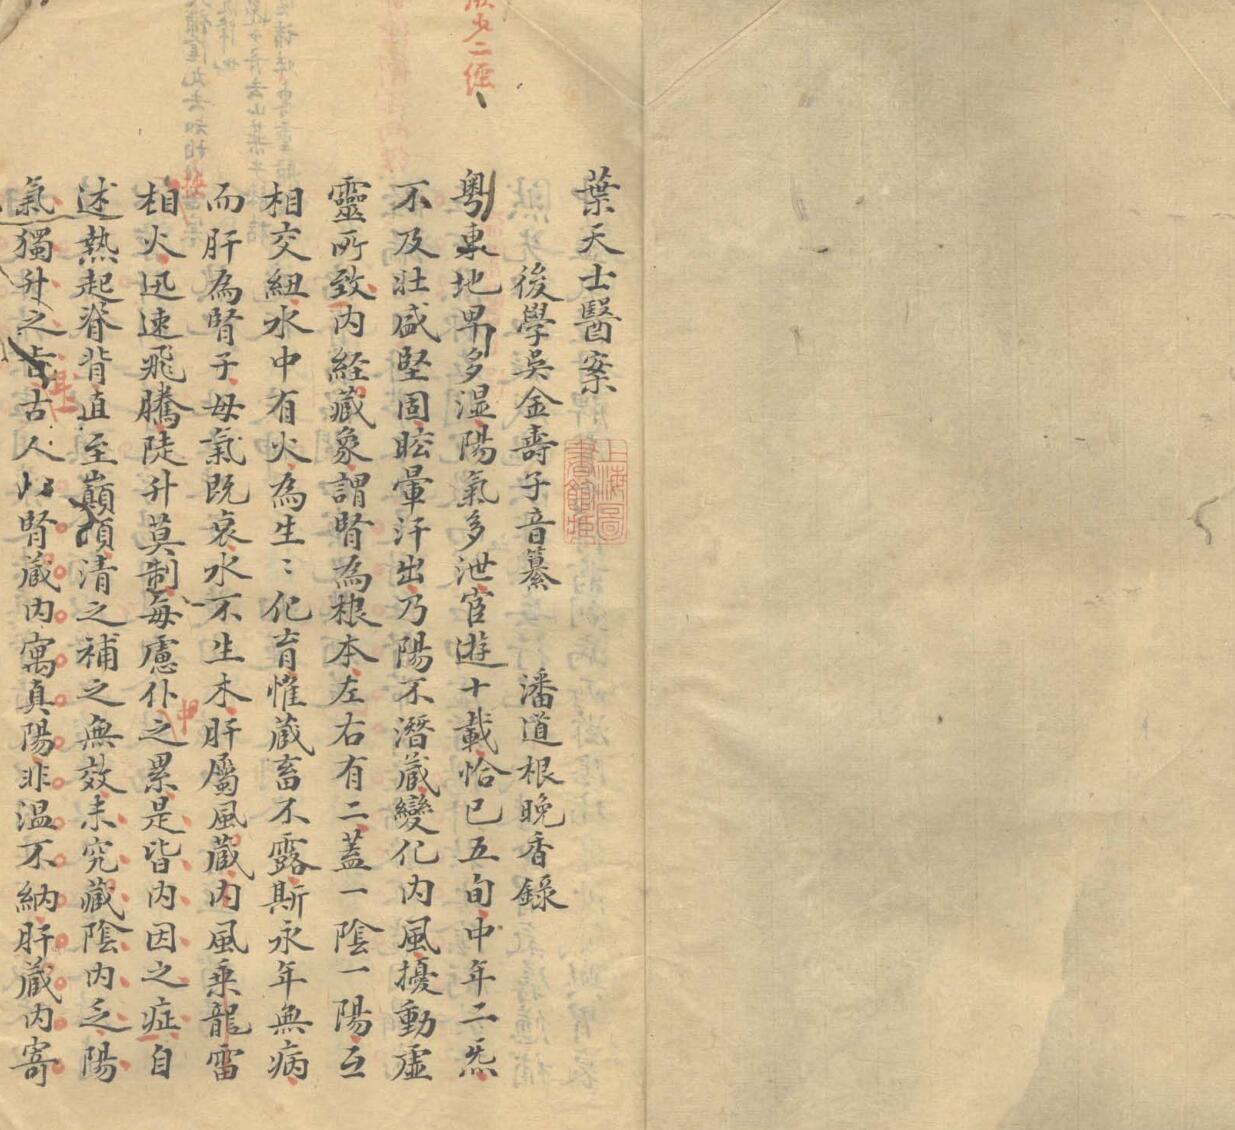 葉天士醫案
後學吳金壽子音纂　潘道根晚香錄
粵東地卑多濕陽氣多泄宦遊十載恰已五旬中年二炁
不及壯盛堅固眩暈汗出乃陽不潛藏變化內風擾動虛
靈所致內経藏象謂腎為根本左右有二蓋一陰一陽互
相交紐水中有火為生〻化育惟藏畜不露斯永年無病
而肝為腎子母氣既衰水不生木肝屬風藏內風乘龍雷
相火迅速飛騰陡升莫制每慮仆之累是皆內因之症自
述熱起脊背直至巔頂清之補之無效未究藏陰內乏陽
氣獨升之旨古人以腎藏內寓真陽非溫不納肝藏內寄
二經
中
上海圖書館藏